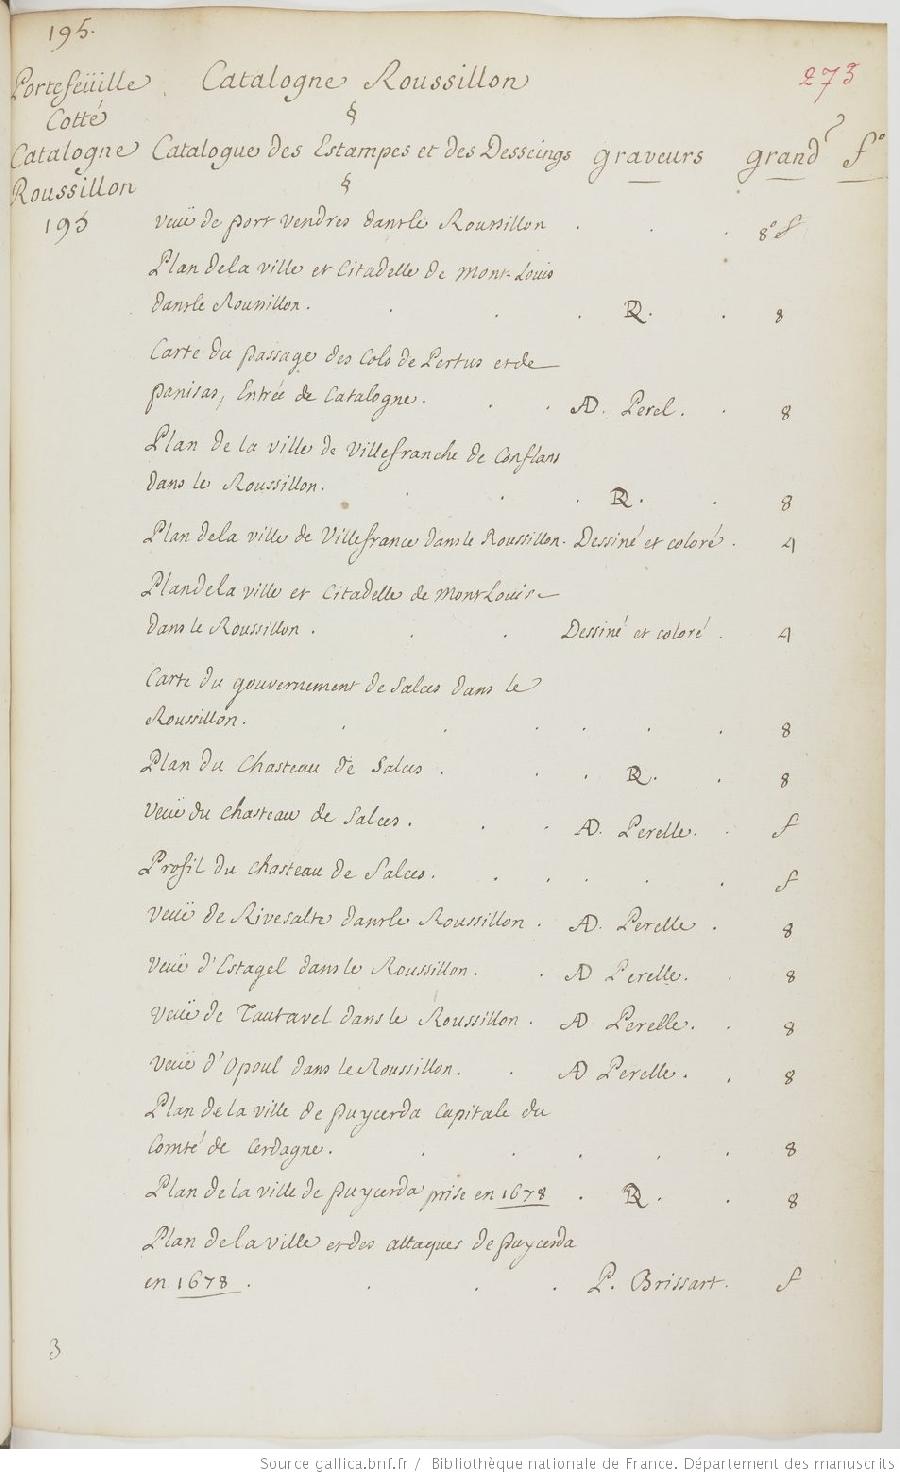 195.
273
Portefeüille Catalogne Roussillon
Cotté §
Catalogne Catalogue des Estampes et des Desseings graveurs grand.r f.o
Roussillon §
195 veüe de port vendres dans le Roussillon . . . 8° f
Plan de la ville et Citadelle de Mont-Louis
dans le Roussillon. . . . R. . 8
Carte du passage des Cols de Pertus et de
panisas, Entrée de Catalogne. . . AD. Perel. . 8
Plan de la ville de Villefranche de Conflans
dans le Roussillon. . . . R. . 8
Plan de la ville de Villefrance dans le Roussillon. Dessiné et coloré. 4
Plan de la ville et Citadelle de Mont Louis
dans le Roussillon . . . Dessiné et coloré . 4
Carte du gouvernement de Salces dans le
Roussillon. . . . . . . 8
Plan du Chasteau de Salces . . . R. . 8
Veüe du Chasteau de Salces. . . AD. Perelle. . f
Profil du chasteau de Salces. . . . . . f
Veüe de Rivesalte dans le Roussillon . AD. Perelle . 8
Veüe d'Estagel dans le Roussillon. . AD Perelle. . 8
Veüe de Tautavel dans le Roussillon . AD Perelle. . 8
Veüe d'Opoul dans le Roussillon. . AD Perelle . . 8
Plan de la ville de puycerda Capitale du
Comté de Cerdagne. . . . . . 8
Plan de la ville de puycerda prise en 1678 . R . . 8
Plan de la ville et des attaques de puycerda
en 1678 . . . . P. Brissart. f
3
Source gallica.bnf.fr / Bibliothèque nationale de France. Département des manuscrits